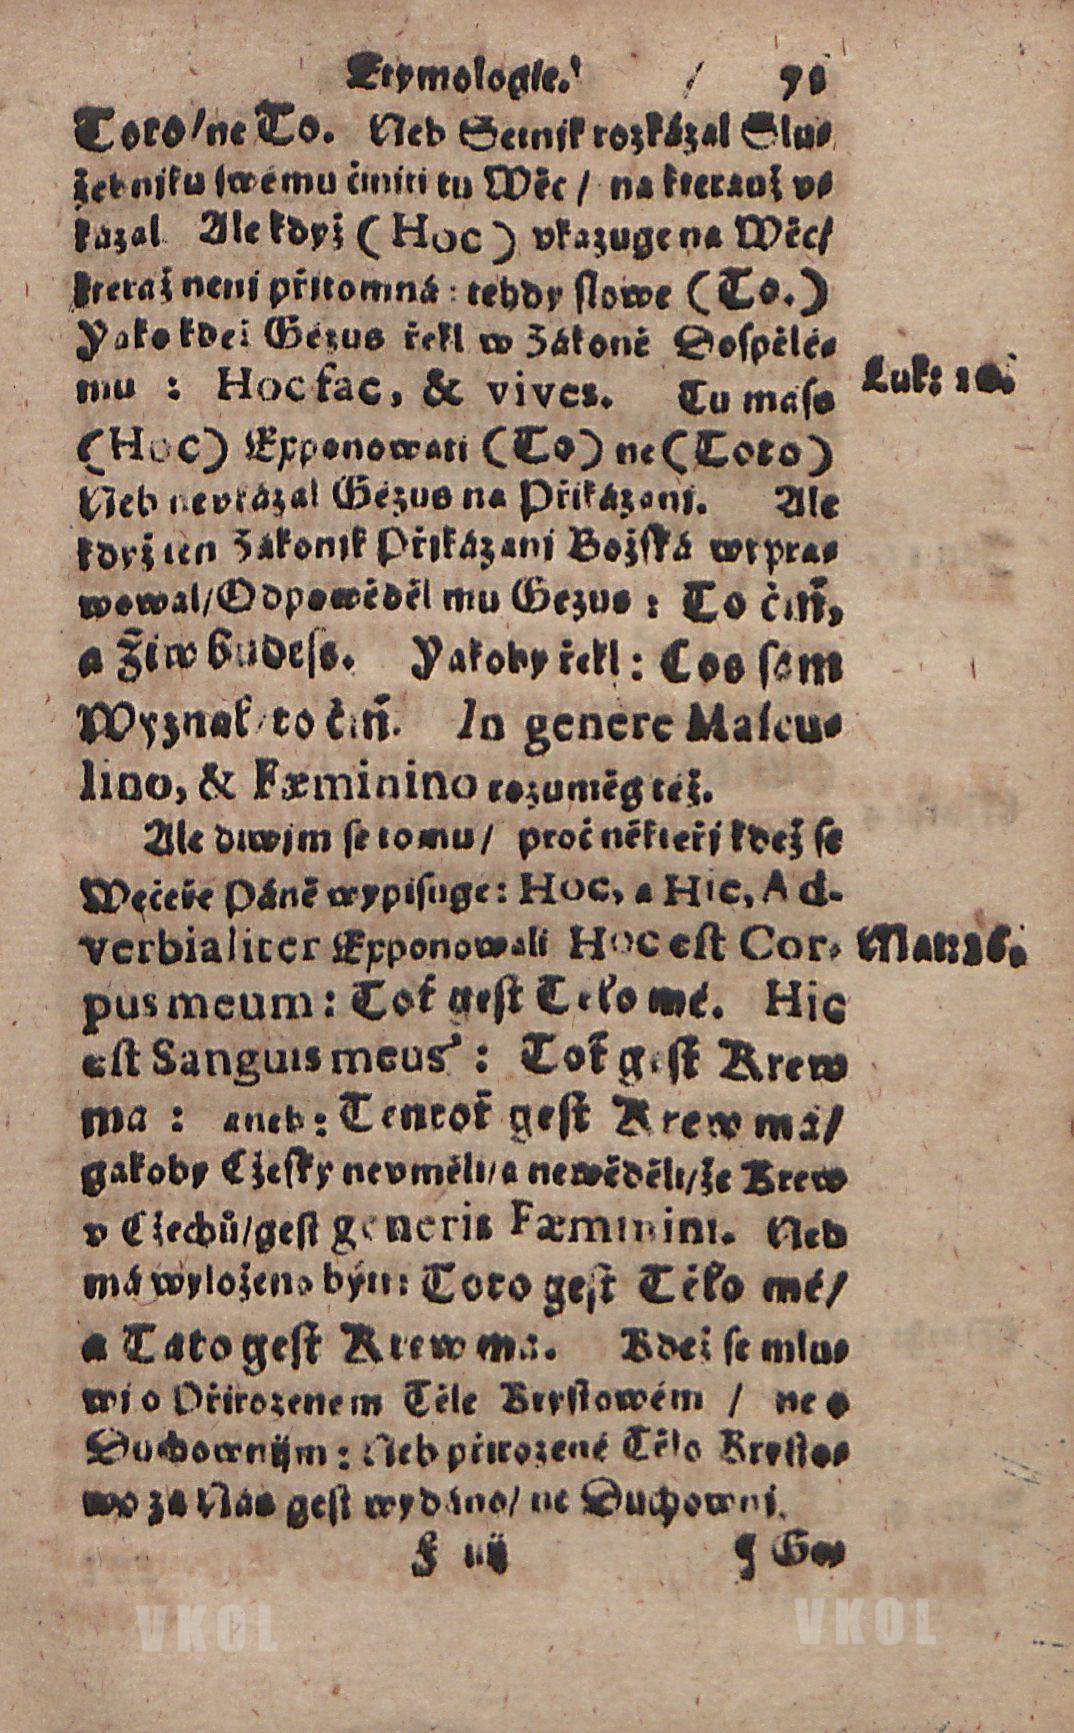 Etymologie.
Toto/ne To. Neb Setnjk rozkázal Slu⸗
žebnjku swému činiti tu Wěc/ na kterauž v⸗
kázal. Ale když (Hoc) vkazuge na Wěc/
kteráž nenj přítomná: tehdy slowe (To.)
Yako kdež Gezus řekl w Zákoně Dospělé⸗
mu : Hoc fac, & vives. Tu máss
Luk: 10.
(Hoc) Exponowati (To) ne (Toto)
Neb nevkázal Gezus na Přikázanj. Ale
když ten Zákonjk Přikázanj Božská wypra⸗
wowal/Odpowěděl mu Gezus : To čiň,
a Žiw budess. Yakoby řekl : Cos sám
Wyznal/to čiň. In genere Mascu⸗
lino, & Fæminino rozuměg též.
Ale diwjm se tomu/ proč někteřj kdež se
Wečeře Páně wypisuge: Hoc, a Hic, Ad-
verbialiter Exponowali Hoc est Cor⸗
Mat: 26.
pus meum : Toť gest Tělo mé. Hic
est Sanguis meus : Toť gest Krew
má : aneb : Tentoť gest Krew má/
gakoby Cžesky nevměli/a newěděli/že Krew
v Cžechů/gest generis Fæminini. Neb
má wyloženo býti: Toto gest Tělo mé/
a Tato gest Krew má. Kdež se mlu⸗
wj o Přirozeném Těle Krystowém / ne o
Duchownijm : Neb přirozené Tělo Krysto⸗
wo za Nás gest wydáno/ ne Duchownj.
F iij